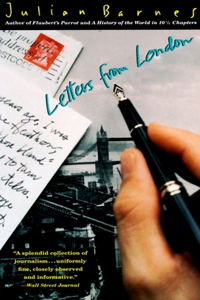 Julian Barnes
Author of Flaubert's Parrot and A History of the World in 10½ Chapters
Letters from London
"A splendid collection
of journalism...uniformly
fine, closely observed
and informative."
—Wall Street Journal